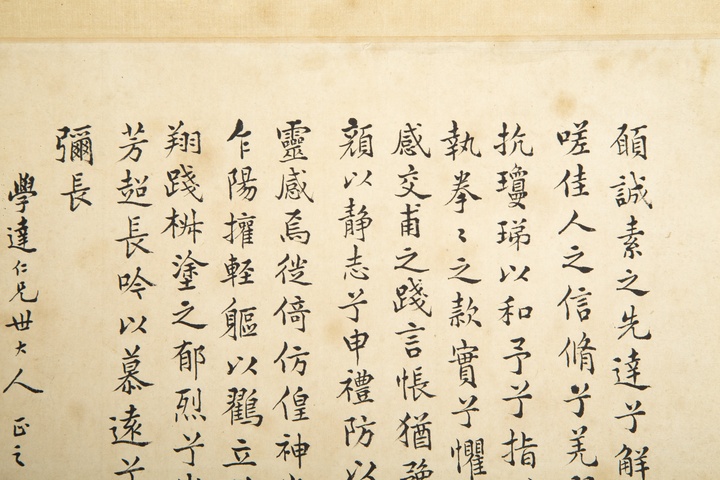 願誠素之先達兮解
嗟佳人之信脩兮羌
抗瓊珶以和予兮指
執拳〻之款實兮懼
感交甫之踐言悵猶
顏以静志兮申禮防以
靈感焉徙倚仿偟神
乍陽擢輕軀以鸖立
翔踐椒塗之郁烈兮
芳超長吟以慕遠兮
彌長
學達仁兄世大人正之